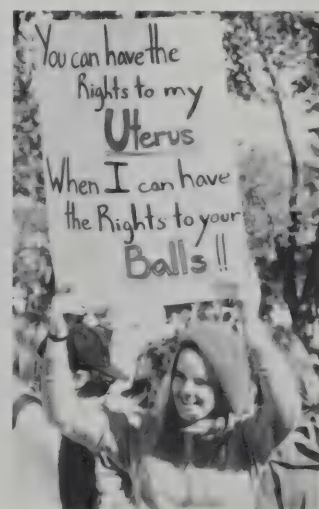 You can have the
Rights to my
Uterus
When I can have
the Rights to your
Balls !!